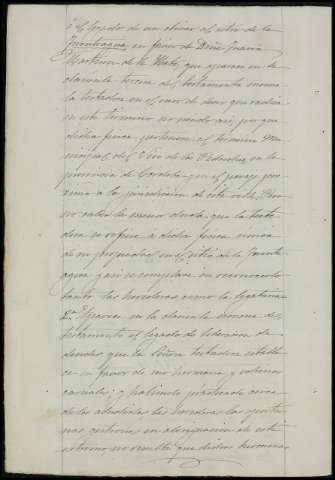 ó el legado de un olivar al sitio de la
Fuentragua en favor de Doña María
Martinez de la Mata, que aparece en la
clausula tercera del testamento
la testadora en el caso de decir que radica
en este término no siendo así, porque
dicha finca pertenece al término mu-
nicipal de Viso de los Pedroches en la
provincia de Cordoba en el paraje
a la jurisdiccion de esta villa. Pero
no cabe la menor duda que la testa-
dora se refiere á dicha finca única
de su propiedad en el sitio de la Fuent-
agua y asi se complacen en reconocerlo
tanto las herederas como la legataria.
2ª Aparece en la clausula novena del
testamento el legado de liberacion de
deudas que la Señora testadora estable-
ce en favor de sus hermanos y sobrinos
carnales; y habiendo practicado cerca
de los albaceas las herederas las oportu-
nas gestiones en averiguacion de este
estremo, no resulta que dichos hermanos